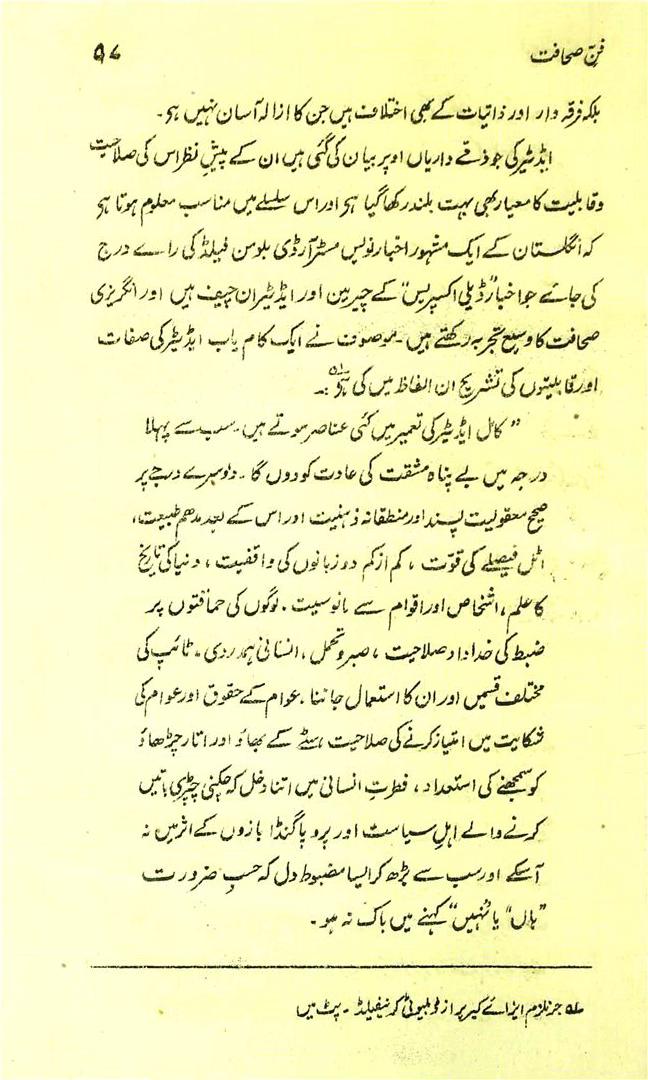 فنِّ صحافت
۵۷
بلکہ فرقہ وار اور ذاتیات کے بھی اختلاف ہیں جن کا ازالہ آسان نہیں ہو۔
ایڈیٹر کی جو ذمّے داریاں اوپر بیان کی گئی ہیں ان کے پیشِ نظر اس کی صلاحیت
و قابلیت کا معیار بھی بہت بلند رکھا گیا ہو اور اس سلسلے میں مناسب معلوم ہوتا ہو
کہ انگلستان کے ایک مشہور اخبار نویس مسٹر آر ڈی بلومن فیلڈ کی راے درج
کی جائے جو اخبار "ڈیلی اکسپریس" کے چیرمین اور ایڈیٹر ان چیف ہیں اور انگریزی
صحافت کا وسیع تجربہ رکھتے ہیں۔ موصوف نے ایک کام یاب ایڈیٹر کی صفات
اور قابلیتوں کی تشریح ان الفاظ میں کی ہو:۔
"کامل ایڈیٹر کی تعمیر میں کئی عناصر ہوتے ہیں۔ سب سے پہلا
درجہ میں بے پناہ مشقت کی عادت کو دوں گا۔ دوسرے درجے پر
صحیح معقولیت پسند اور منطقانہ ذہنیت اور اس کے بعد مدھم طبیعت،
اٹل فیصلے کی قوّت، کم از کم دو زبانوں کی واقفیت، دنیا کی تاریخ
کا علم، اشخاص اور اقوام سے مانوسیت۔ لوگوں کی حماقتوں پر
ضبط کی خداداد صلاحیت، صبر و تحمل، انسانی ہمدردی۔ ٹائپ کی
مختلف قسمیں اور ان کا استعمال جاننا، عوام کے حقوق اور عوام کی
شکایت میں امتیاز کرنے کی صلاحیت، سٹے کے بھاؤ اور اتار چڑھاؤ
کو سمجھنے کی استعداد، فطرتِ انسانی میں اتنا دخل کہ چکنی چپڑی باتیں
کرنے والے اہلِ سیاست اور پروپاگنڈا بازوں کے اثر میں نہ
آسکے اور سب سے بڑھ کر ایسا مضبوط دل کہ حسبِ ضرورت
"ہاں" یا "نہیں" کہنے میں باک نہ ہو۔
جرنلزم ایز اے کیریر از ڈبلیو ٹی کرنیفیلڈ۔ پٹ مین